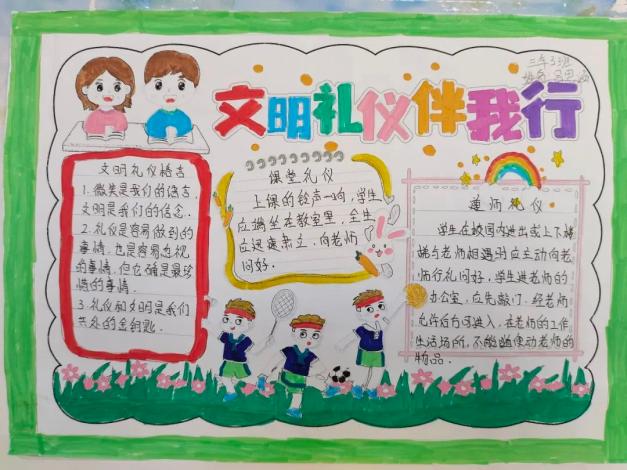 三年3班
文明礼仪伴我行
文明礼仪格言
1.微笑是我们的语言,
文明是我们的信念.
2.礼仪是容易做到的
事情,也是容易忽视
的事情,但它确是最珍
惜的事情.
3.礼仪和文明是我们
共处的金钥匙.
课堂礼仪
上课的铃声一响,学生
应端坐在教室里,
应迅速肃立,向老师
问好.
尊师礼仪
学生在校园内进出或上下楼
梯与老师相遇时应主动向老
师行礼问好,学生进老师的
办公室,应先敲门,经老师
允许后方可进入,在老师的工作
生活场所,不能随便动老师的
物品.